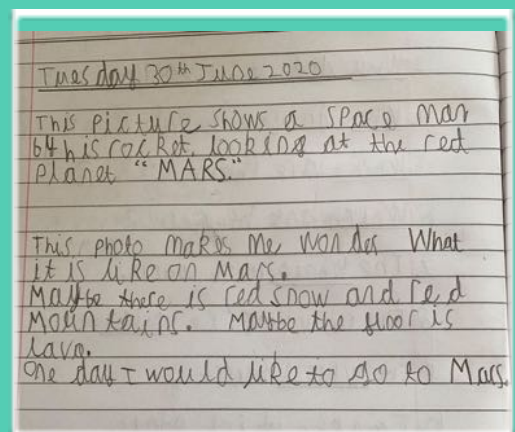 Tuesday 30th June 2020
This picture shows a space man
by his rocket, looking at the red
planet "MARS."
This photo makes me wonder What
it is like on Mars.
Maybe there is red snow and red
Mountains. Maybe the floor is
lava.
One day I would like to go to Mars.